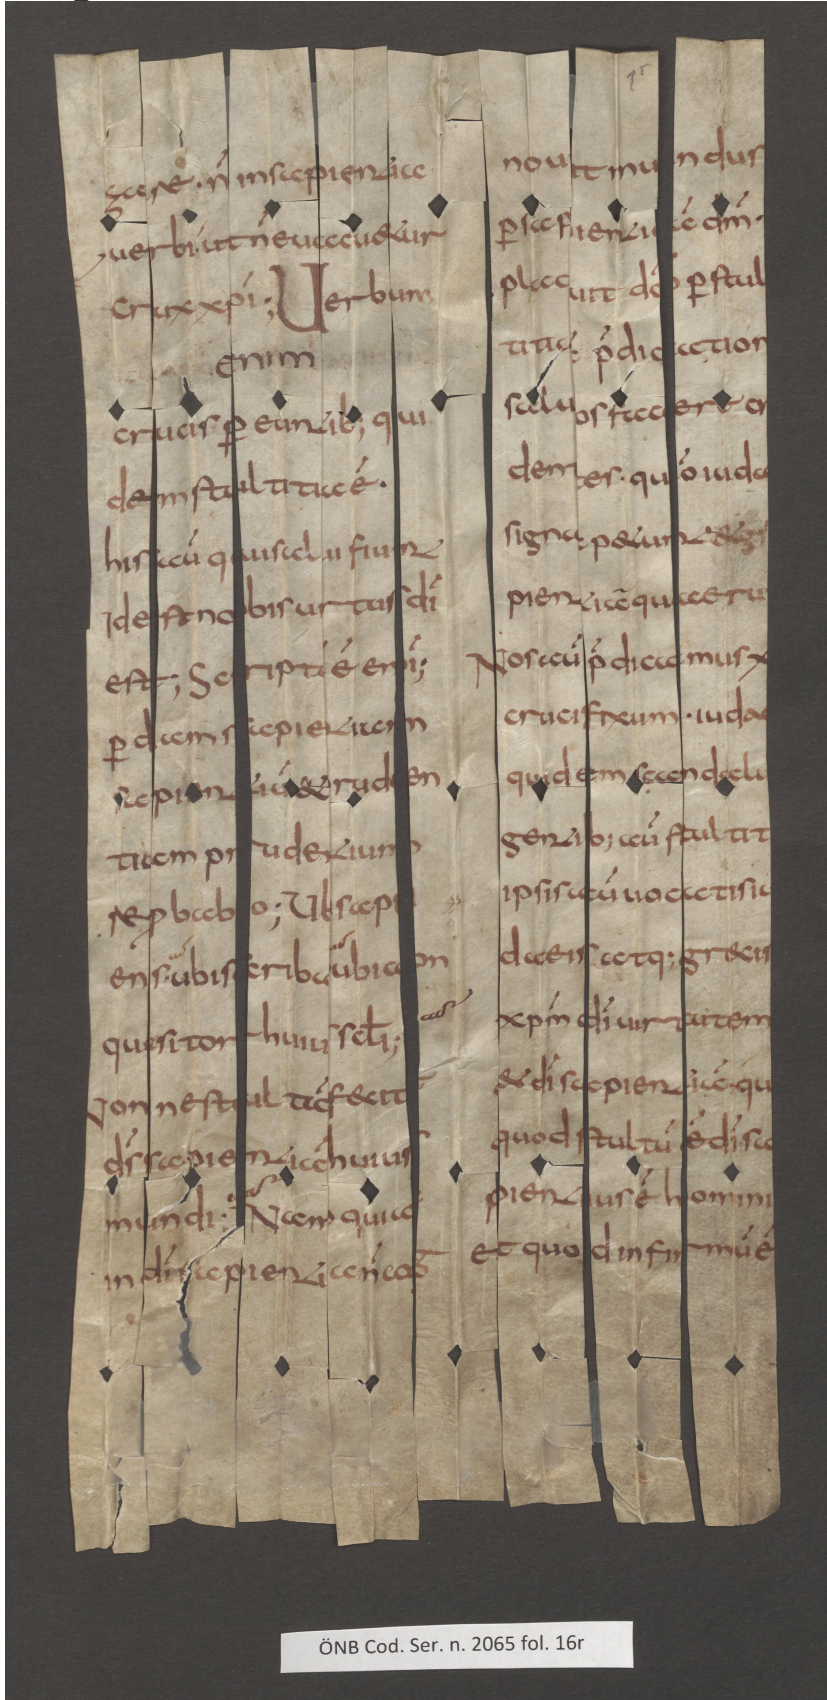 gare · n̄ insapientia
uerbi ut n̄ euacuetur
crux xp̄i; Uerbum
enim
crucis ꝑeuntib; qui
dem stultitia ē ·
his aū qui salui fiunt
Id est nobis uirtus dī
est; Scriptū ē enī;
ꝑdam sapientiam
sapientiū & pruden
tiam prudentium
reꝓbabo; Ubi sapi
ens · ubi scriba ubi con
quisitor huius scl̄i;
Nonne stultā fecit
ds̄ sapientiā huius
mundi; Nam quia
in dī sapientia n̄ cog
nouit mundus
ꝑ sapientiā dm̄ ·
placuit dō ꝑ stul
titia p̄dication
saluos facere cr
dentes · quō iudae
signa petunt & g
sapientiā quaeru
Nos aū p̄dicamus x
crucifixum · iudae
quidem scandalu
gentib; aū stultit
ipsis aū uocatis iu
daeis atq; grecis
xpm̄ dī uirtutem
& dī sapientiā · qu
quod stultū ē dī sa
pientius ē homini
Et quod infirmū ē
ÖNB Cod. Ser. n. 2065 fol. 16r